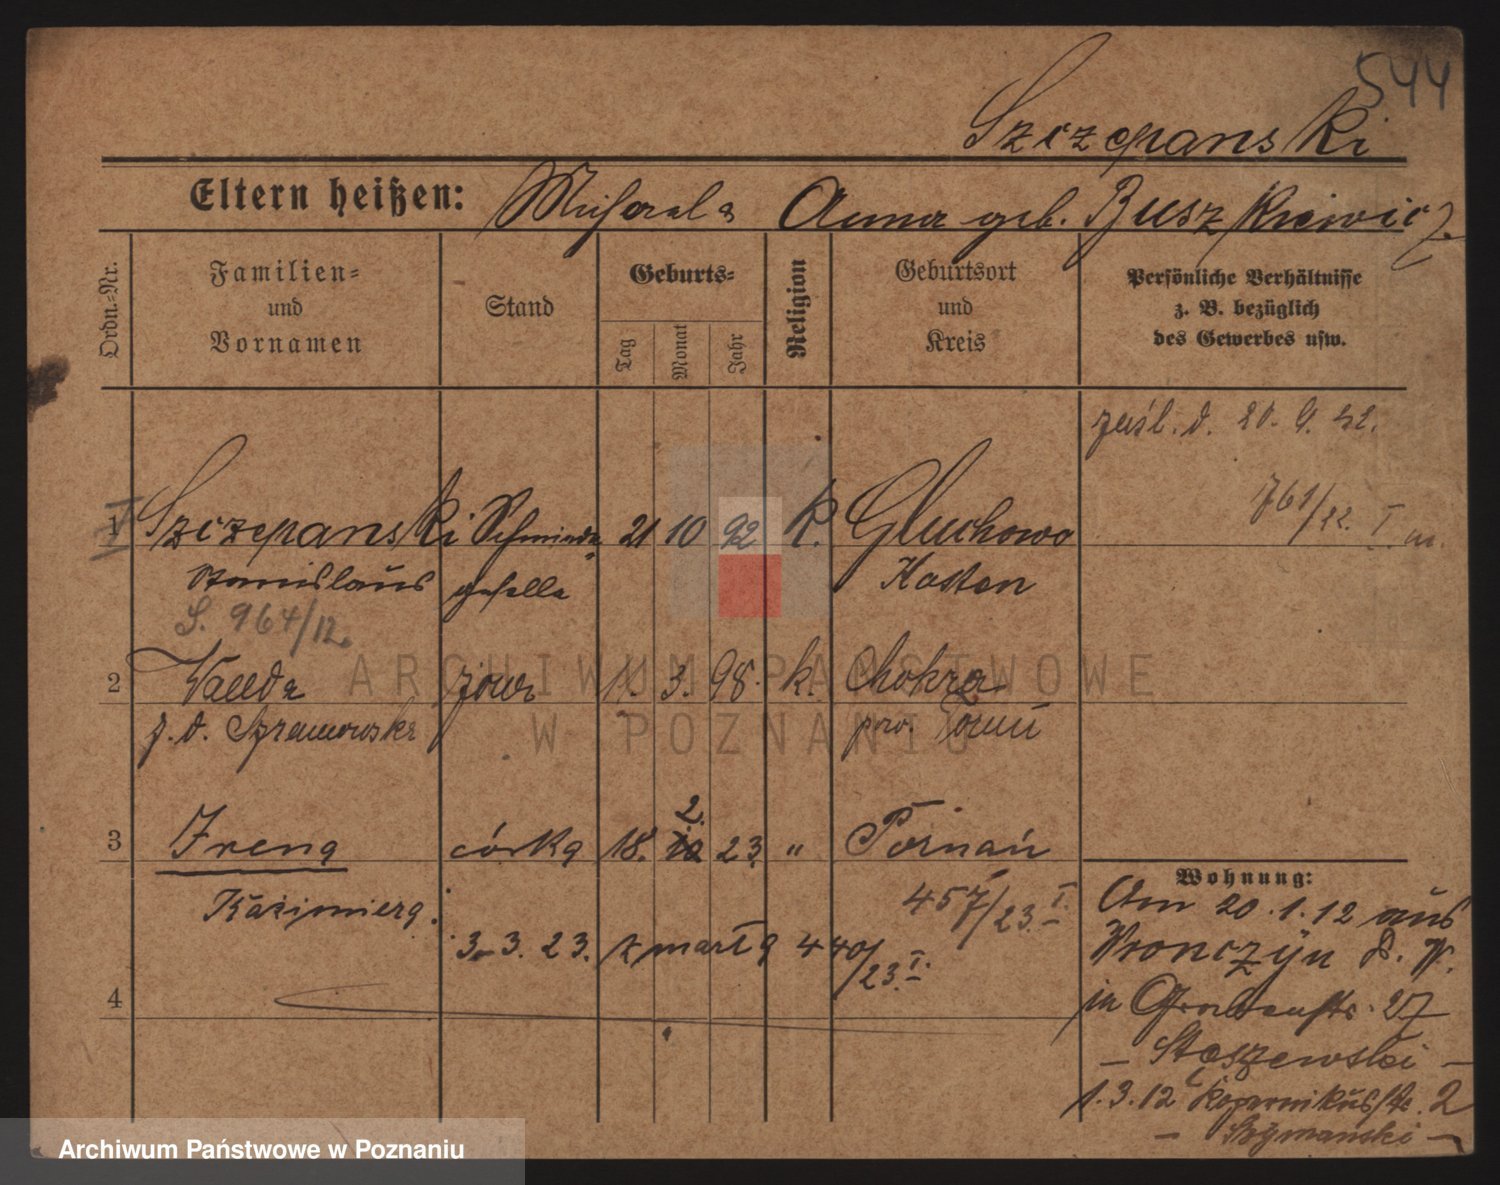 544
Szczepanski
Eltern heißen: Anna geb. Buszkiewicz
Ordn.-Nr.
Familien-
und
Vornamen
Stand
Geburts-
Tag
Monat
Jahr
Religion
Geburtsort
und
Kreis
Persönliche Verhältnisse
z. B. bezüglich
des Gewerbes usw.
zaśl. d.
761/22. I
1 Szczepanski Schmiede- 21 10 92 k. Gluchowo
Stanislaus geselle Kosten
S. 964/12.
2 Wanda żona 1. 3. 98. k.
z. d. pow.
3 Irena córka 18. 2. 23. " Poznań
Kazimiera. 457/23. I.
3. 3. 23. zmarła 440/23. I.
4
Wohnung:
Am 20.1.12 aus
Wronczyn
in 27
– Staszewski –
1.3.12 Kopernikusstr. 2
– Szymański –
ARCHIWUM PAŃSTWOWE
W POZNANIU
Archiwum Państwowe w Poznaniu